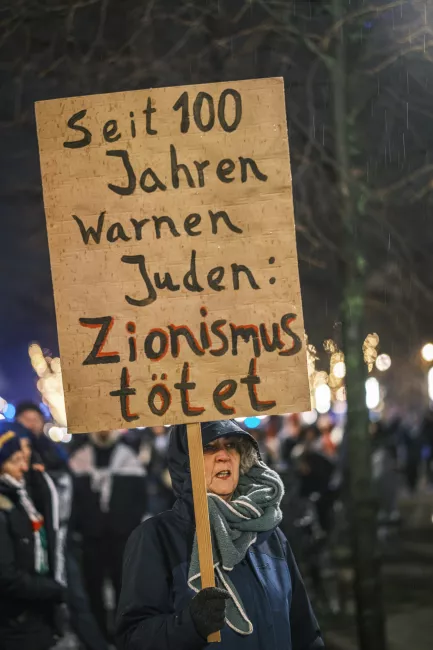 Seit 100
Jahren
Warnen
Juden:
Zionismus
tötet